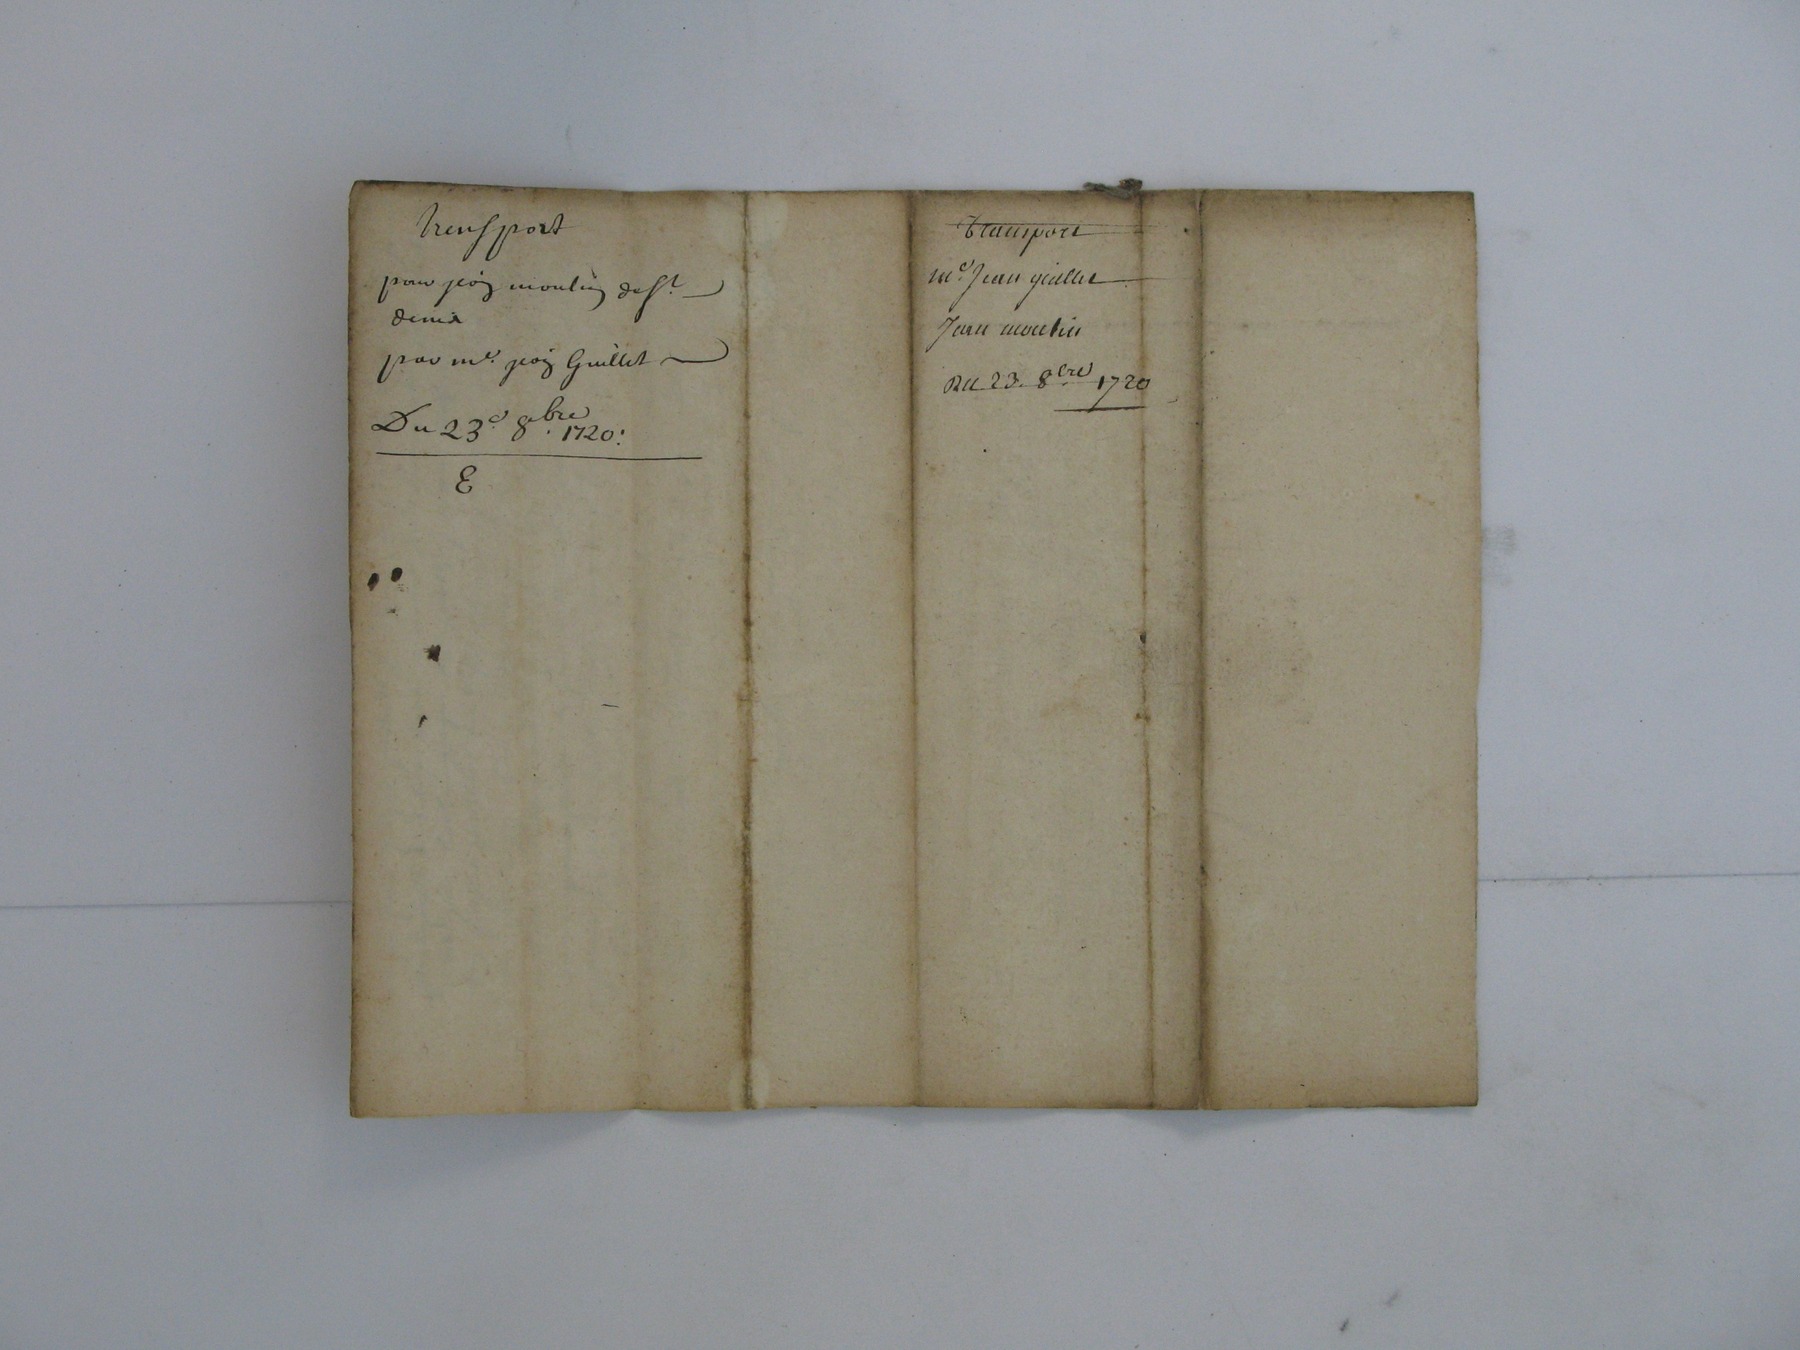 Transport
pour jean moulin de St
denis
par me. jean Guillet
Du 23e 8bre. 1720:
E
Transport
me. Jean guillet
Jean moulin
Du 23. 8bre 1720